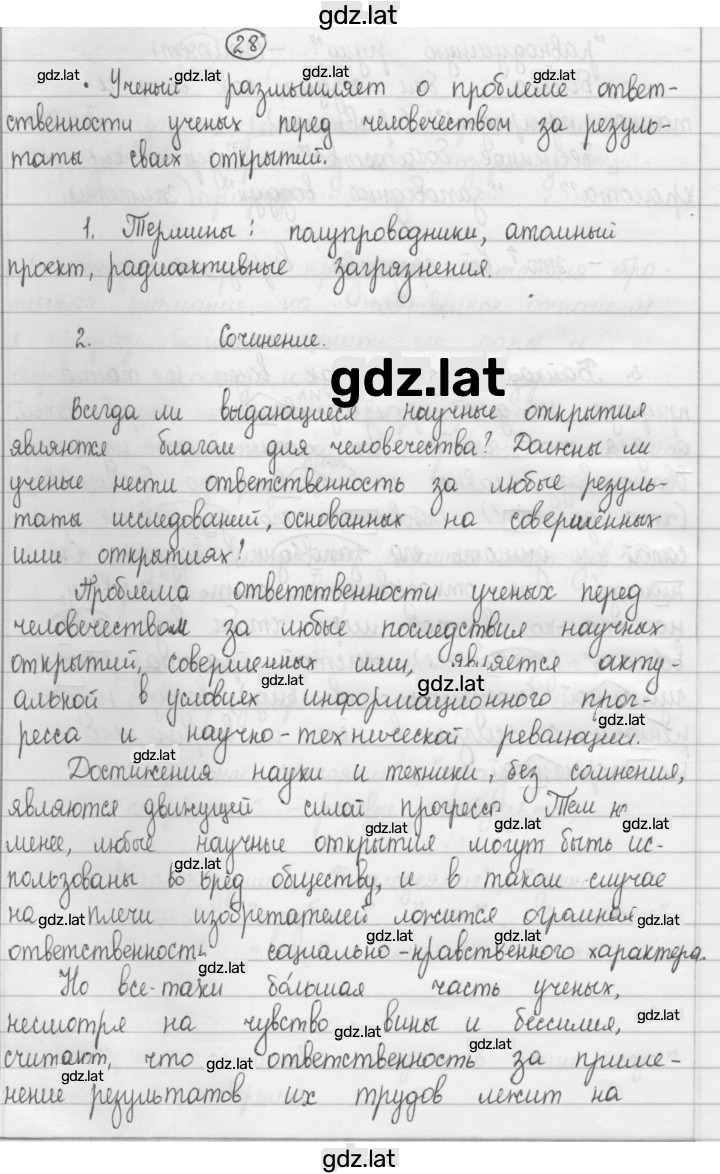 gdz.lat
28
· Ученый размышляет о проблеме ответ-
ственности ученых перед человечеством за резуль-
таты своих открытий.
1. Термины: полупроводники, атомный
проект, радиоактивные загрязнения.
2. Сочинение.
gdz.lat
Всегда ли выдающиеся научные открытия
являются благом для человечества? Должны ли
ученые нести ответственность за любые резуль-
таты исследований, основанных на совершённых
ими открытиях?
Проблема ответственности ученых перед
человечеством за любые последствия научных
открытий, совершенных ими, является акту-
альной в условиях информационного прог-
ресса и научно-технической революции.
Достижения науки и техники, без сомнения,
являются движущей силой прогресса Тем н
менее, любые научные открытия могут быть ис-
пользованы во вред обществу, и в таком случае
на плечи изобретателей ложится огромная
ответственность социально-нравственного характера.
Но все-таки большая часть ученых,
несмотря на чувство вины и бессилия,
считают, что ответственность за приме-
нение результатов их трудов лежит на
gdz.lat